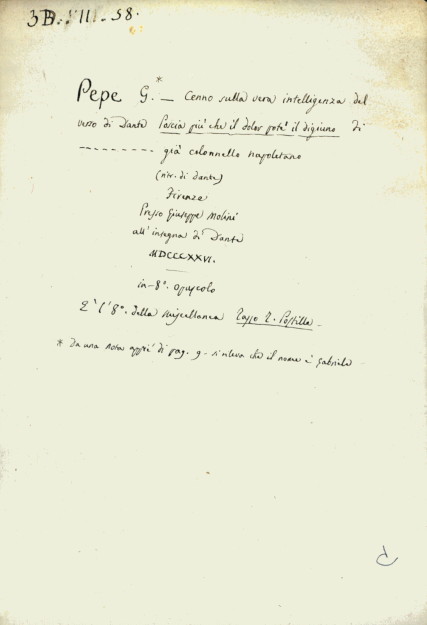 3B.VII.58.
Pepe G.* — Cenno sulla vera intelligenza del
verso di Dante Poscia più che il dolor potè il digiuno di
- - - - - - - - - già colonnello napoletano
(riv. di Dante)
Firenze
Presso Giuseppe Molini
all' insegna di Dante
MDCCCXXVI.
in-8°. opuscolo
È l' 8°. della miscellanea Tasso T. Postille
* Da una nota appiè di pag. 9 - si rileva che il nome è Gabriele